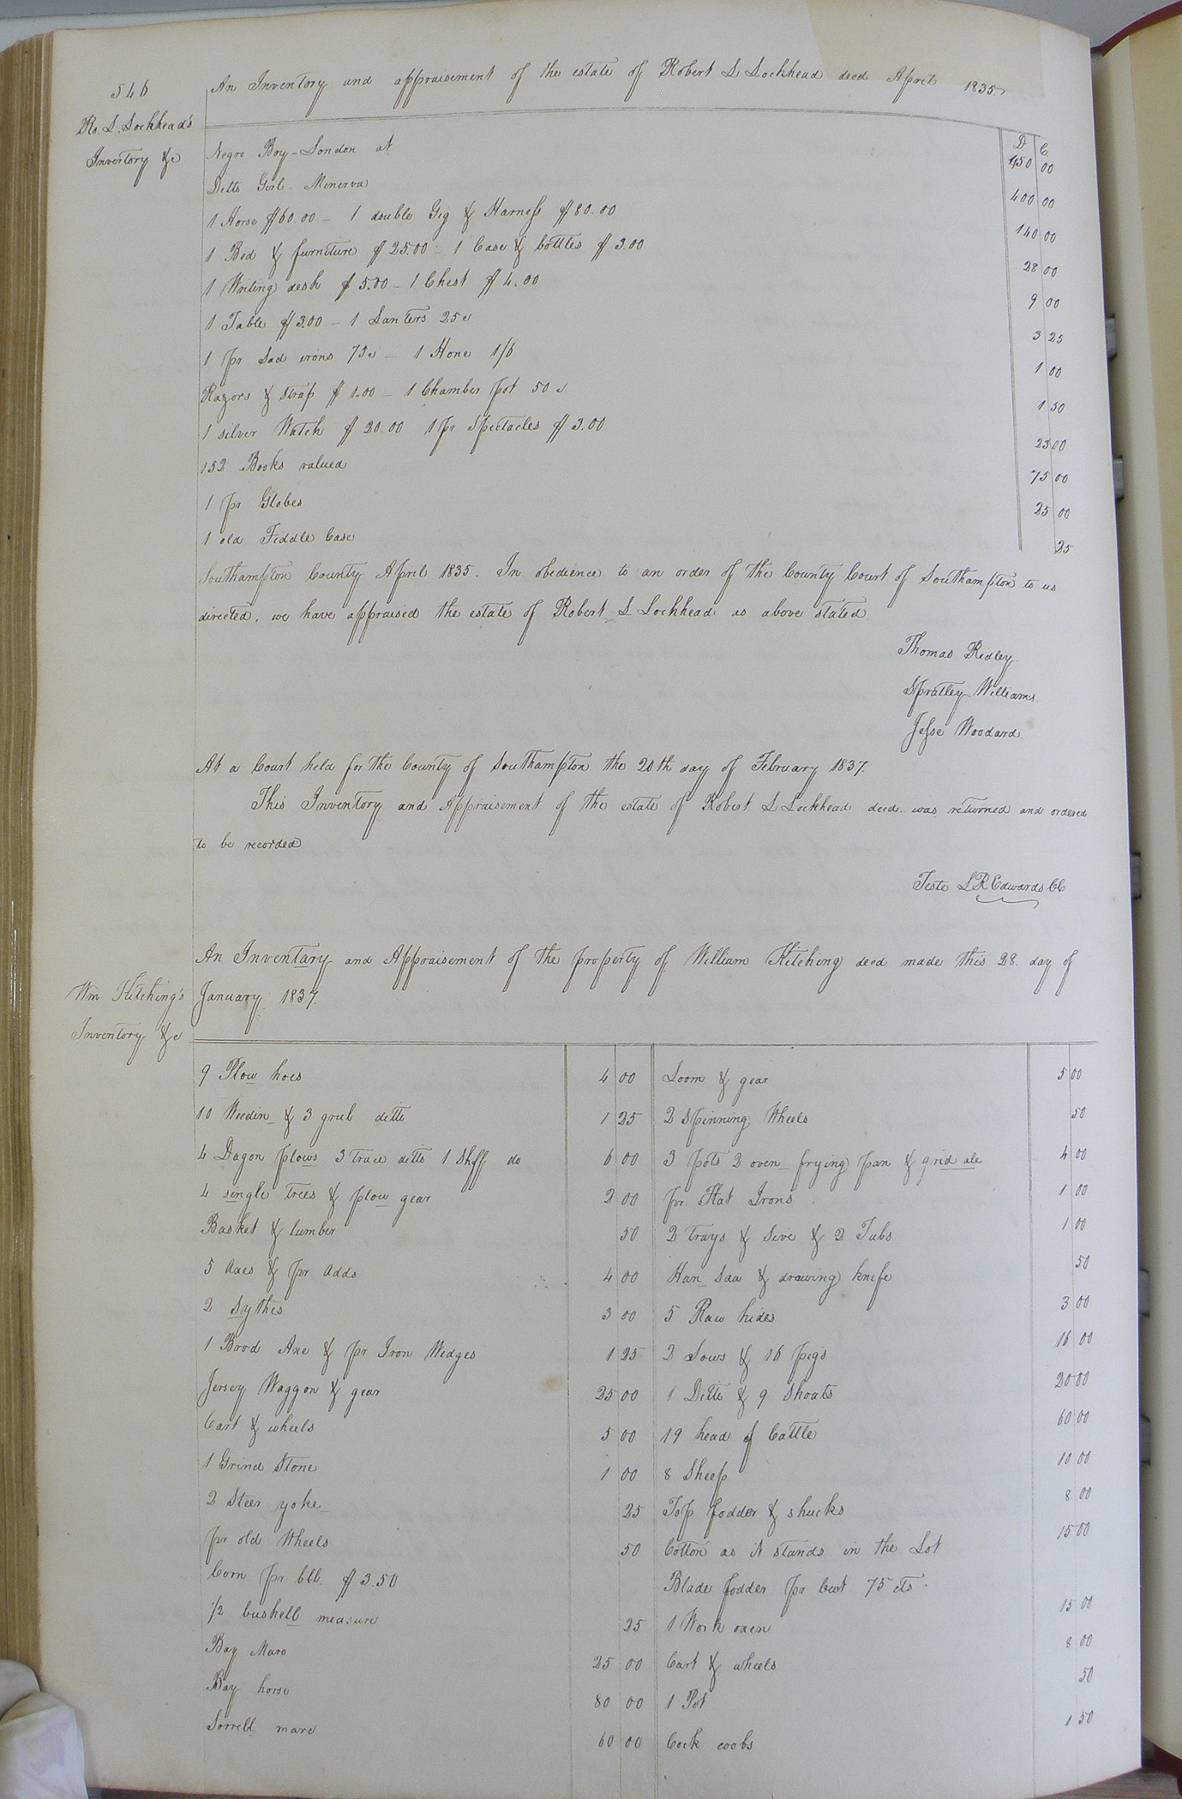 546
An Inventory and appraisement of the estate of Robert S Lockhead decd April 1835
Ro. S. Lockhead's
Inventory &c
D C
Negro Boy - London at 450 00
Ditto Girl - Minerva 400 00
1 Horse $60.00 - 1 double Gig & Harness $80.00 140 00
1 Bed & furniture $25.00 - 1 Case & bottles $3.00 28 00
1 Writing desk $5.00 - 1 Chest $4.00 9 00
1 Table $3.00 - 1 Lantern 25c 3 25
1 pr Sad irons 75c - 1 Hone 1/6 1 00
Razors & strap $1.00 - 1 Chamber pot 50c 1 50
1 silver Watch $20.00 1 pr Spectacles $3.00 23 00
152 Books valued 75 00
1 pr Globes 25 00
1 old Fiddle Case 25
Southampton County April 1835. In obedience to an order of the County Court of Southampton to us
directed, we have appraised the estate of Robert S Lockhead as above stated
Thomas Ridley
Spratley Williams
Jesse Woodard
At a Court held for the County of Southampton the 20th day of February 1837.
This Inventory and Appraisement of the estate of Robert S Lockhead decd. was returned and ordered
to be recorded
Teste L R Edwards CC
An Inventary and Appraisement of the property of William Kitching decd made this 28. day of
Wm Kitching's
Inventory &c
January 1837.
9 Plow hoes 4 00
10 Weedin & 3 grub ditto 1 25
4 Dagon plows 3 trace ditto 1 Shff do 6 00
4 single trees & plow gear 2 00
Basket & lumber 50
5 Axes & pr Adds 4 00
2 Sythes 3 00
1 Brod Axe & pr Iron Wedges 1 25
Jersey Waggon & gear 25 00
Cart & wheels 5 00
1 Grind Stone 1 00
2 Steer yoke 25
pr old Wheels 50
Corn pr bll $3.50
1/2 bushell measure 25
Bay Mare 25 00
Bay horse 80 00
Sorrell mare 60 00
Loom & gear 5 00
2 Spinning Wheels 50
3 pots 2 oven frying pan & grid ale 4 00
pr Flat Irons 1 00
2 Trays & Sive & 2 Tubs 1 00
Han Saw & drawing knife 50
5 Raw hides 3 00
2 Sows & 16 pigs 16 00
1 Ditto & 9 Shoats 20 00
19 head of Cattle 60 00
8 Sheep 10 00
Top fodder & shucks 8 00
Cotton as it stands in the Lot 15 00
Blade fodder pr cwt 75 cts
1 Work oxen 15 00
Cart & wheels 8 00
1 Pot 50
Cock coobs 1 50